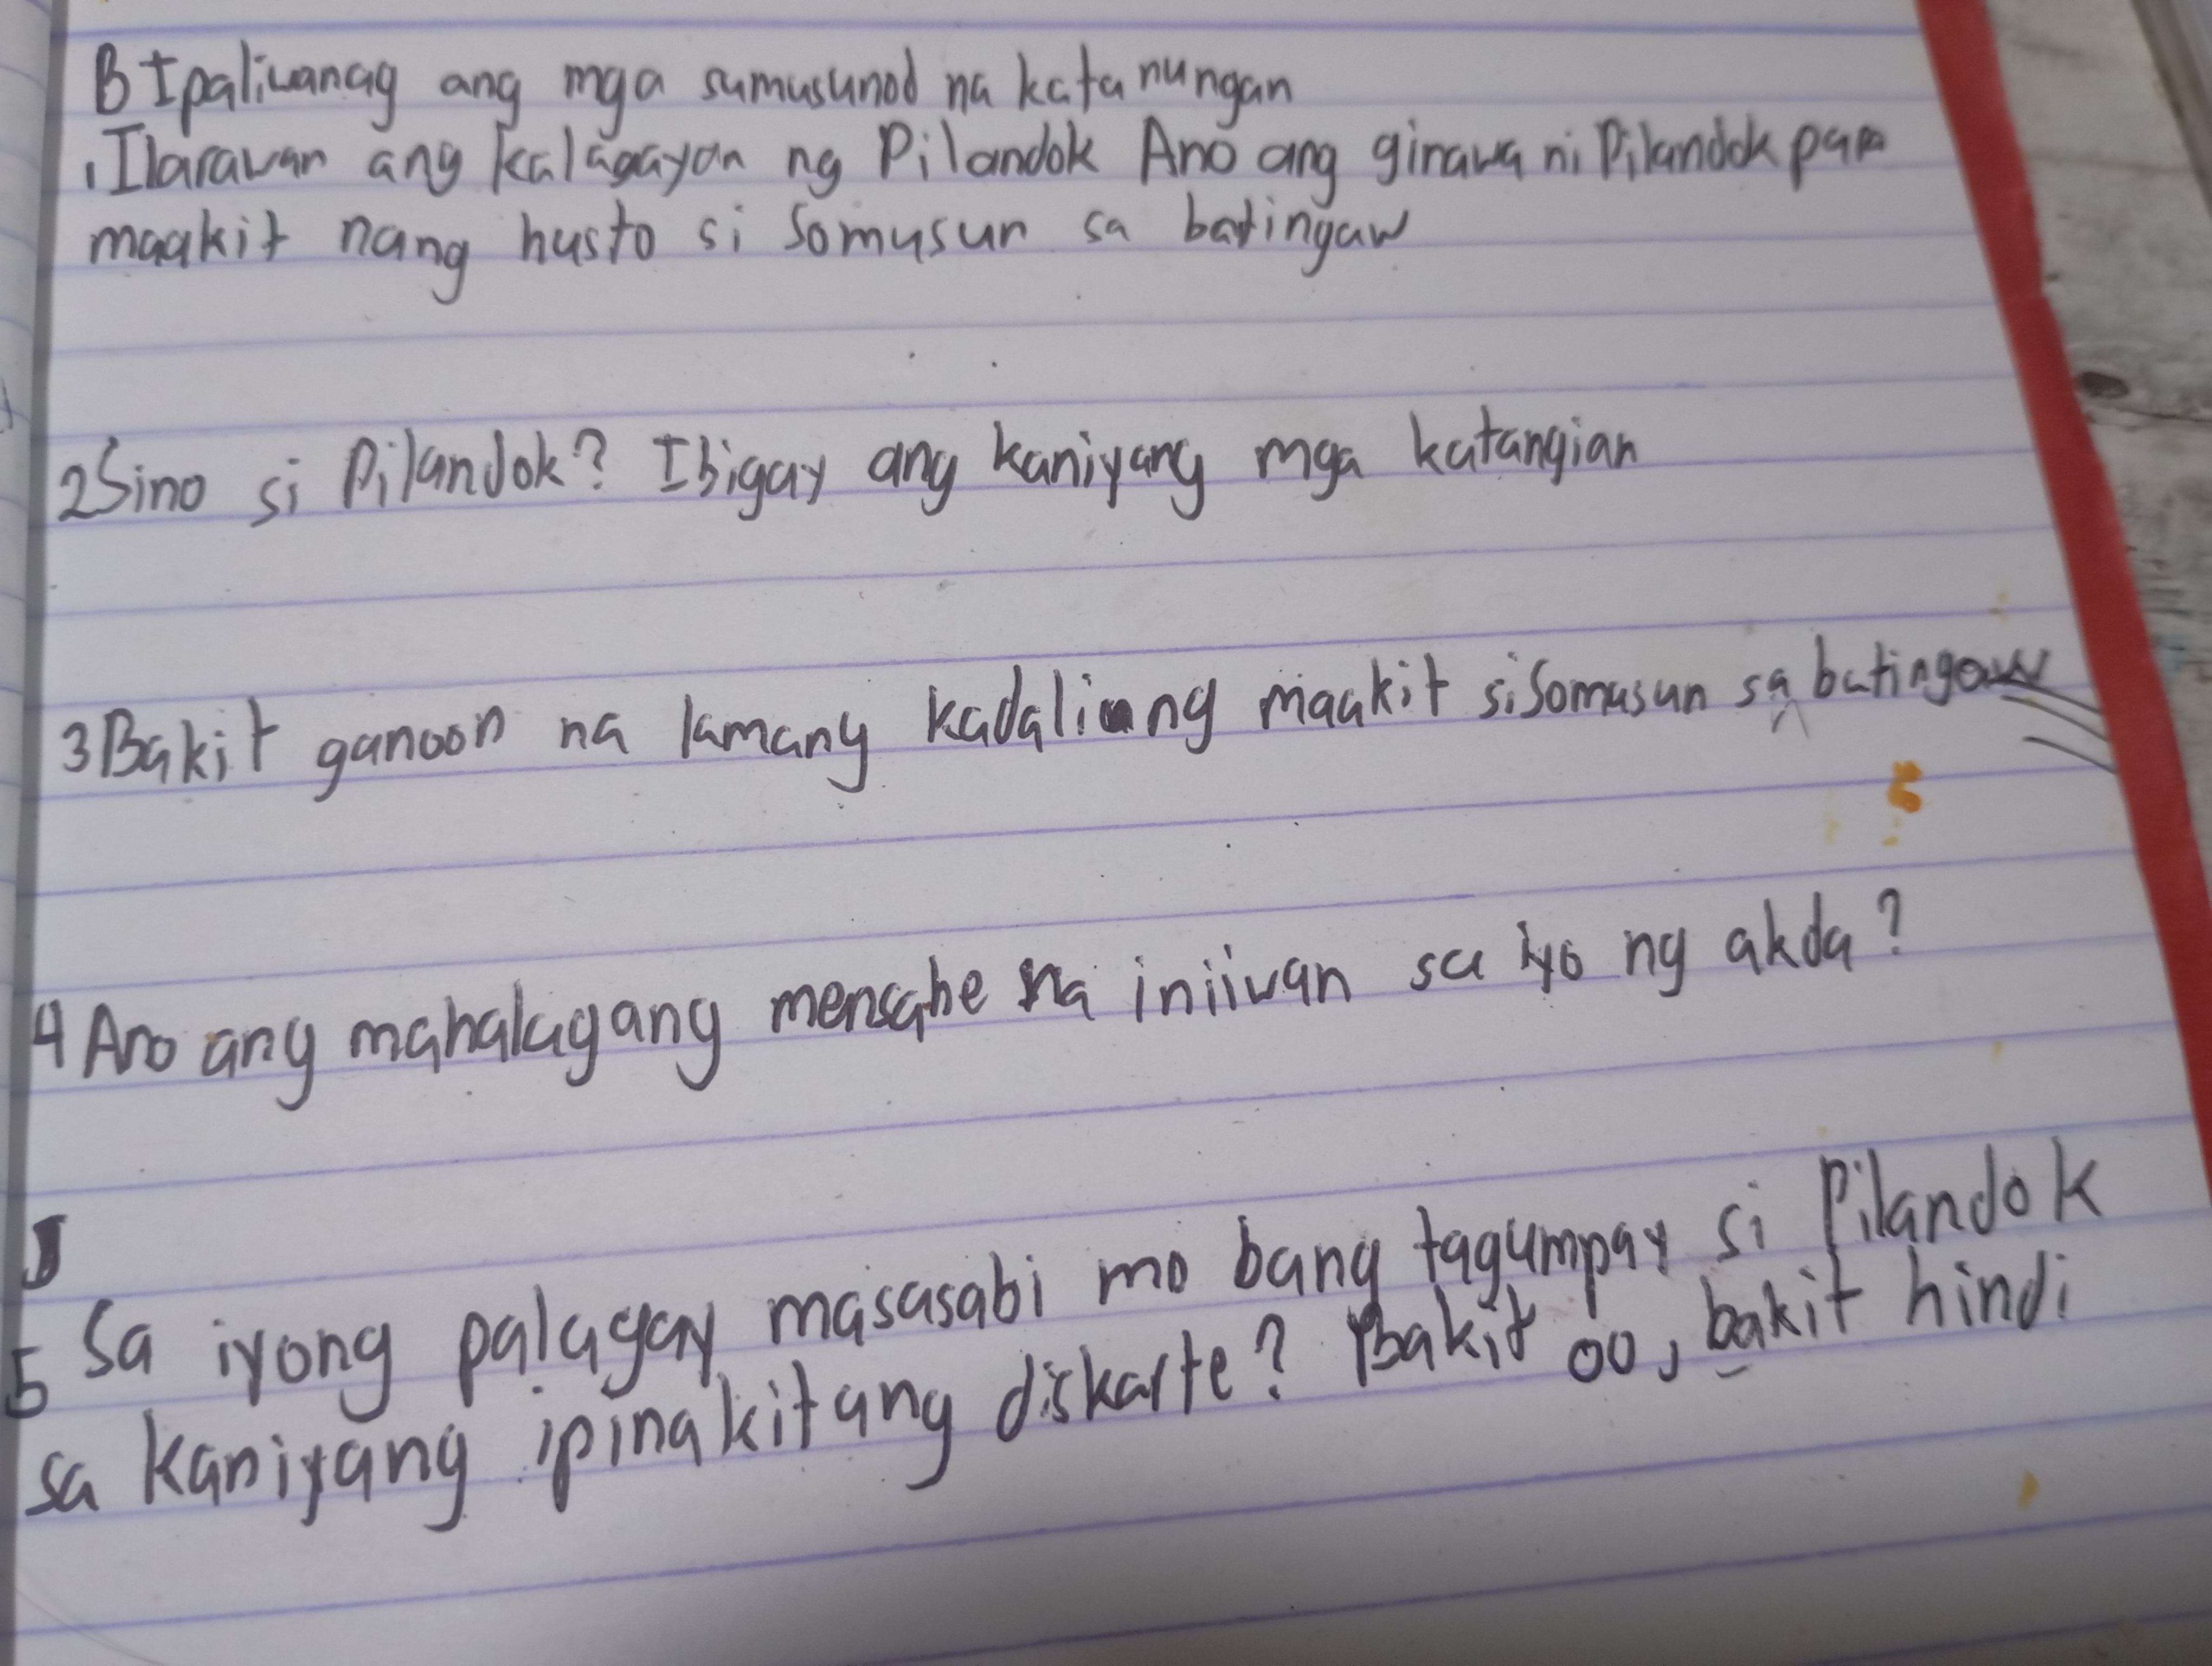 B Ipaliwanag ang mga sumusunod na katanungan
1 Ilarawan ang kalagayan ng Pilandok Ano ang ginawa ni Pilandok para
maakit nang husto si Somusun sa batingaw
2 Sino si Pilandok? Ibigay ang kaniyang mga katangian
3 Bakit ganoon na lamang kadaliang maakit si Somusun sa batingaw
4 Ano ang mahalagang mensahe na iniiwan sa iyo ng akda?
5 Sa iyong palagay masasabi mo bang tagumpay si Pilandok
sa kaniyang ipinakitang diskarte? Bakit oo, bakit hindi